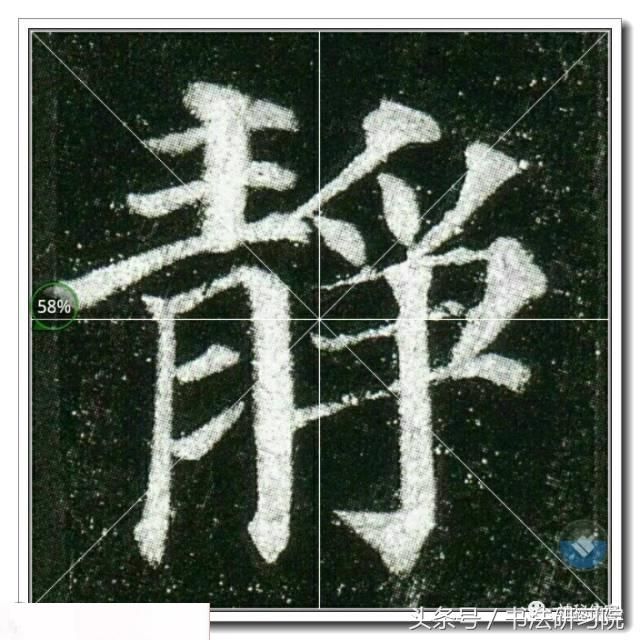 靜
58%
头条号 / 书法研习院